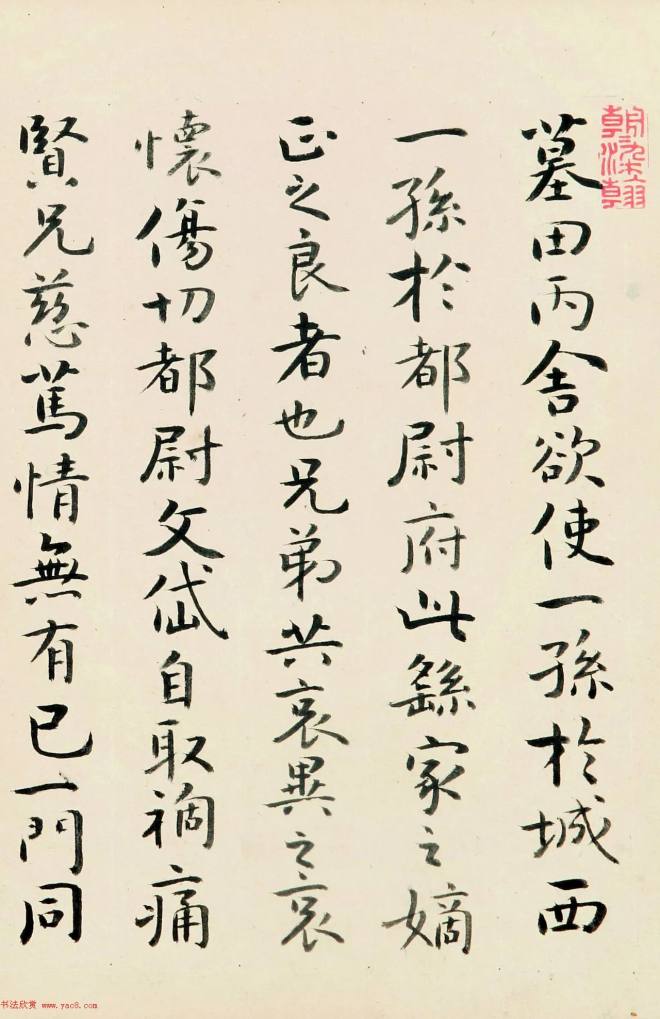 墓田丙舍欲使一孫於城西
一孫於都尉府此繇家之嫡
正之良者也兄弟共哀異之哀
懷傷切都尉文岱自取禍痛
賢兄慈篤情無有已一門同
书法欣赏 www.yac8.com